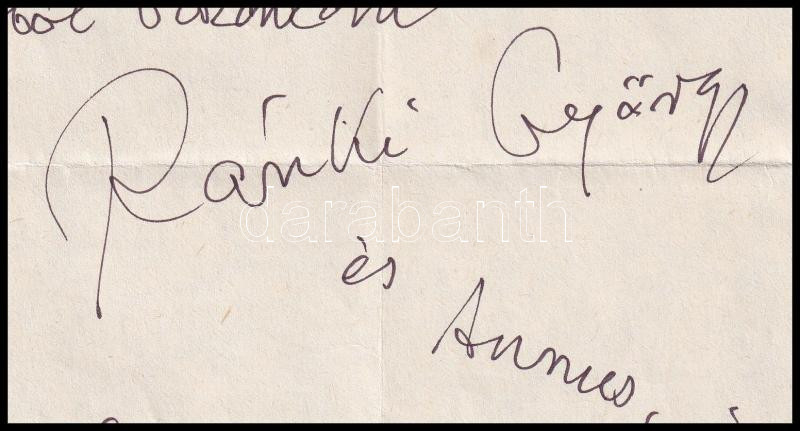 Ránki György
és
Annus,
darabanth